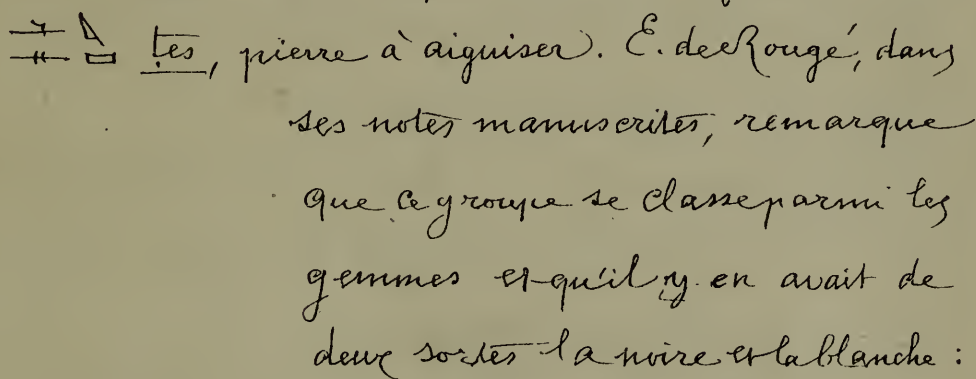 ṭes, pierre à aiguiser. E. de Rougé, dans
ses notes manuscrites, remarque
que ce groupe se classe parmi les
gemmes et qu'il y en avait de
deux sortes la noire et la blanche :